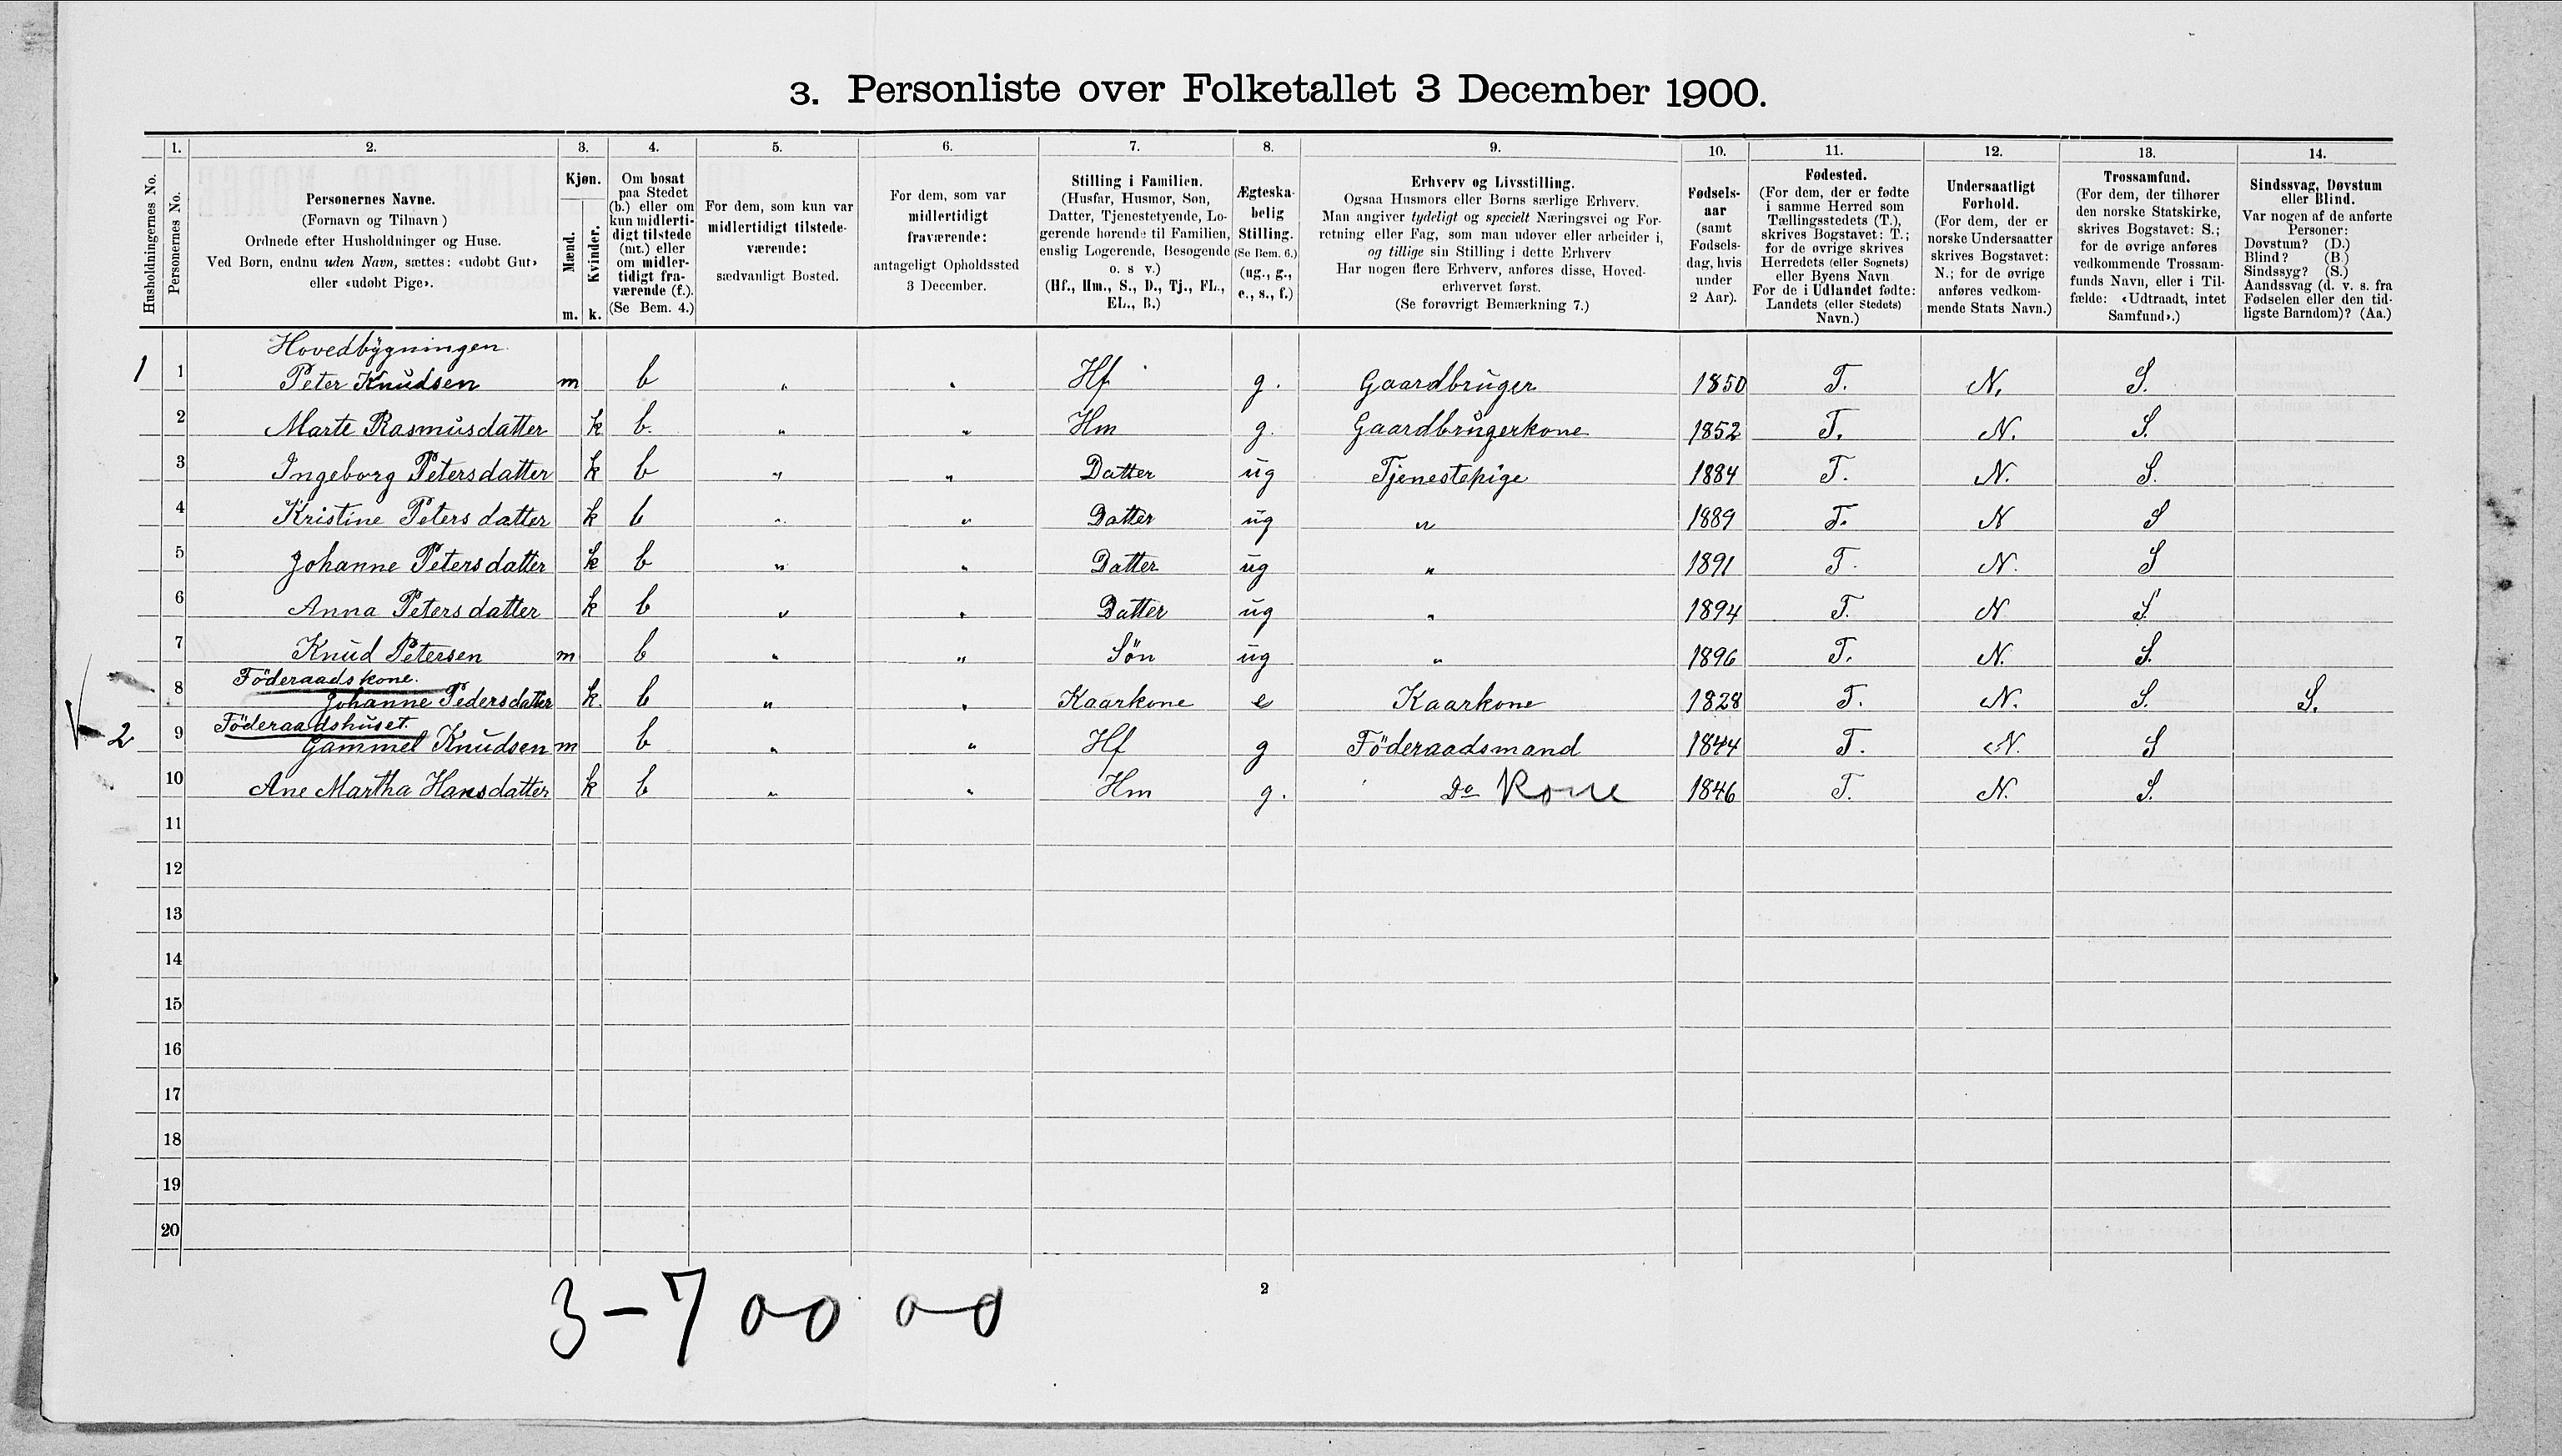 3. Personliste over Folketallet 3 December 1900.
Husholdningernes No.
1.
Personernes No.
2.
Personernes Navne.
(Fornavn og Tilnavn)
Ordnede efter Husholdninger og Huse.
Ved Børn, endnu uden Navn, sættes: «udøbt Gut»
eller «udøbt Pige».
3.
Kjøn.
Mænd.
Kvinder.
m. k.
4.
Om bosat
paa Stedet
(b.) eller om
kun midlerti-
digt tilstede
(mt.) eller
om midler-
tidigt fra-
værende (f.).
(Se Bem. 4.)
5.
For dem, som kun var
midlertidigt tilstede-
værende:
sædvanligt Bosted.
6.
For dem, som var
midlertidigt
fraværende:
antageligt Opholdssted
3 December.
7.
Stilling i Familien.
(Husfar, Husmor, Søn,
Datter, Tjenestetyende, Lo-
gerende hørende til Familien,
enslig Logerende, Besøgende
o. s v.)
(Hf., Hm., S., D., Tj., FL.,
EL., B.)
8.
Ægteska-
belig
Stilling.
(Se Bem. 6.)
(ug., g.,
e., s., f.)
9.
Erhverv og Livsstilling.
Ogsaa Husmors eller Børns særlige Erhverv.
Man angiver tydeligt og specielt Næringsvei og For-
retning eller Fag, som man udøver eller arbeider i,
og tillige sin Stilling i dette Erhverv
Har nogen flere Erhverv, anføres disse, Hoved-
erhvervet først.
(Se forøvrigt Bemærkning 7.)
10.
Fødsels-
aar
(samt
Fødsels-
dag, hvis
under
2 Aar).
11.
Fødested.
(For dem, der er fødte
i samme Herred som
Tællingsstedets (T.),
skrives Bogstavet: T.;
for de øvrige skrives
Herredets (eller Sognets)
eller Byens Navn
For de i Udlandet fødte:
Landets (eller Stedets)
Navn.)
12.
Undersaatligt
Forhold.
(For dem, der er
norske Undersaatter
skrives Bogstavet:
N.; for de øvrige
anføres vedkom-
mende Stats Navn.)
13.
Trossamfund.
(For dem, der tilhører
den norske Statskirke,
skrives Bogstavet: S.;
for de øvrige anføres
vedkommende Trossam-
funds Navn, eller i Til-
fælde: «Udtraadt, intet
Samfund».)
14.
Sindssvag, Døvstum
eller Blind.
Var nogen af de anførte
Personer:
Døvstum? (D.)
Blind? (B.)
Sindssyg? (S.)
Aandssvag (d. v. s. fra
Fødselen eller den tid-
ligste Barndom)? (Aa.)
Hovedbygningen
1 1 Peter Knudsen m b " " Hf g. Gaardbruger 1850 T. N. S.
2 Marte Rasmusdatter k b. " " Hm g. Gaardbrugerkone 1852 T. N. S.
3 Ingeborg Petersdatter k b " " Datter ug Tjenestepige 1884 T. N. S.
4 Kristine Petersdatter k b " " Datter ug " 1889 T. N S
5 Johanne Petersdatter k b " " Datter ug " 1891 T. N. S
6 Anna Petersdatter k b " " Datter ug " 1894 T. N S.
7 Knud Petersen m b " " Søn ug " 1896 T. N. S.
Föderaadskone.
8 Johanne Pedersdatter k. b " " Kaarkone e Kaarkone 1828 T. N. S. S.
Föderaadshuset.
2 9 Gammel Knudsen m b " " Hf g Föderaadsmand 1844 T. N. S
10 Ane Martha Hansdatter k b " " Hm g. Do Kone 1846 T. N. S.
11
12
13
14
15
16
17
18
19
20
2
3-7 00 00